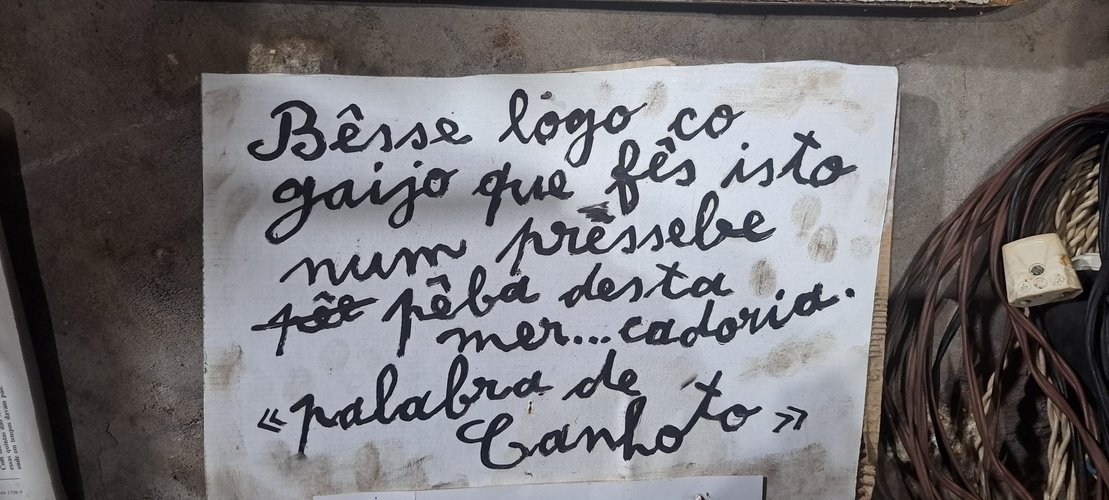 Bêsse logo co
gaijo que fês isto
num prêssebe
pêba desta
mer...cadoria.
«palabra de
Canhoto»